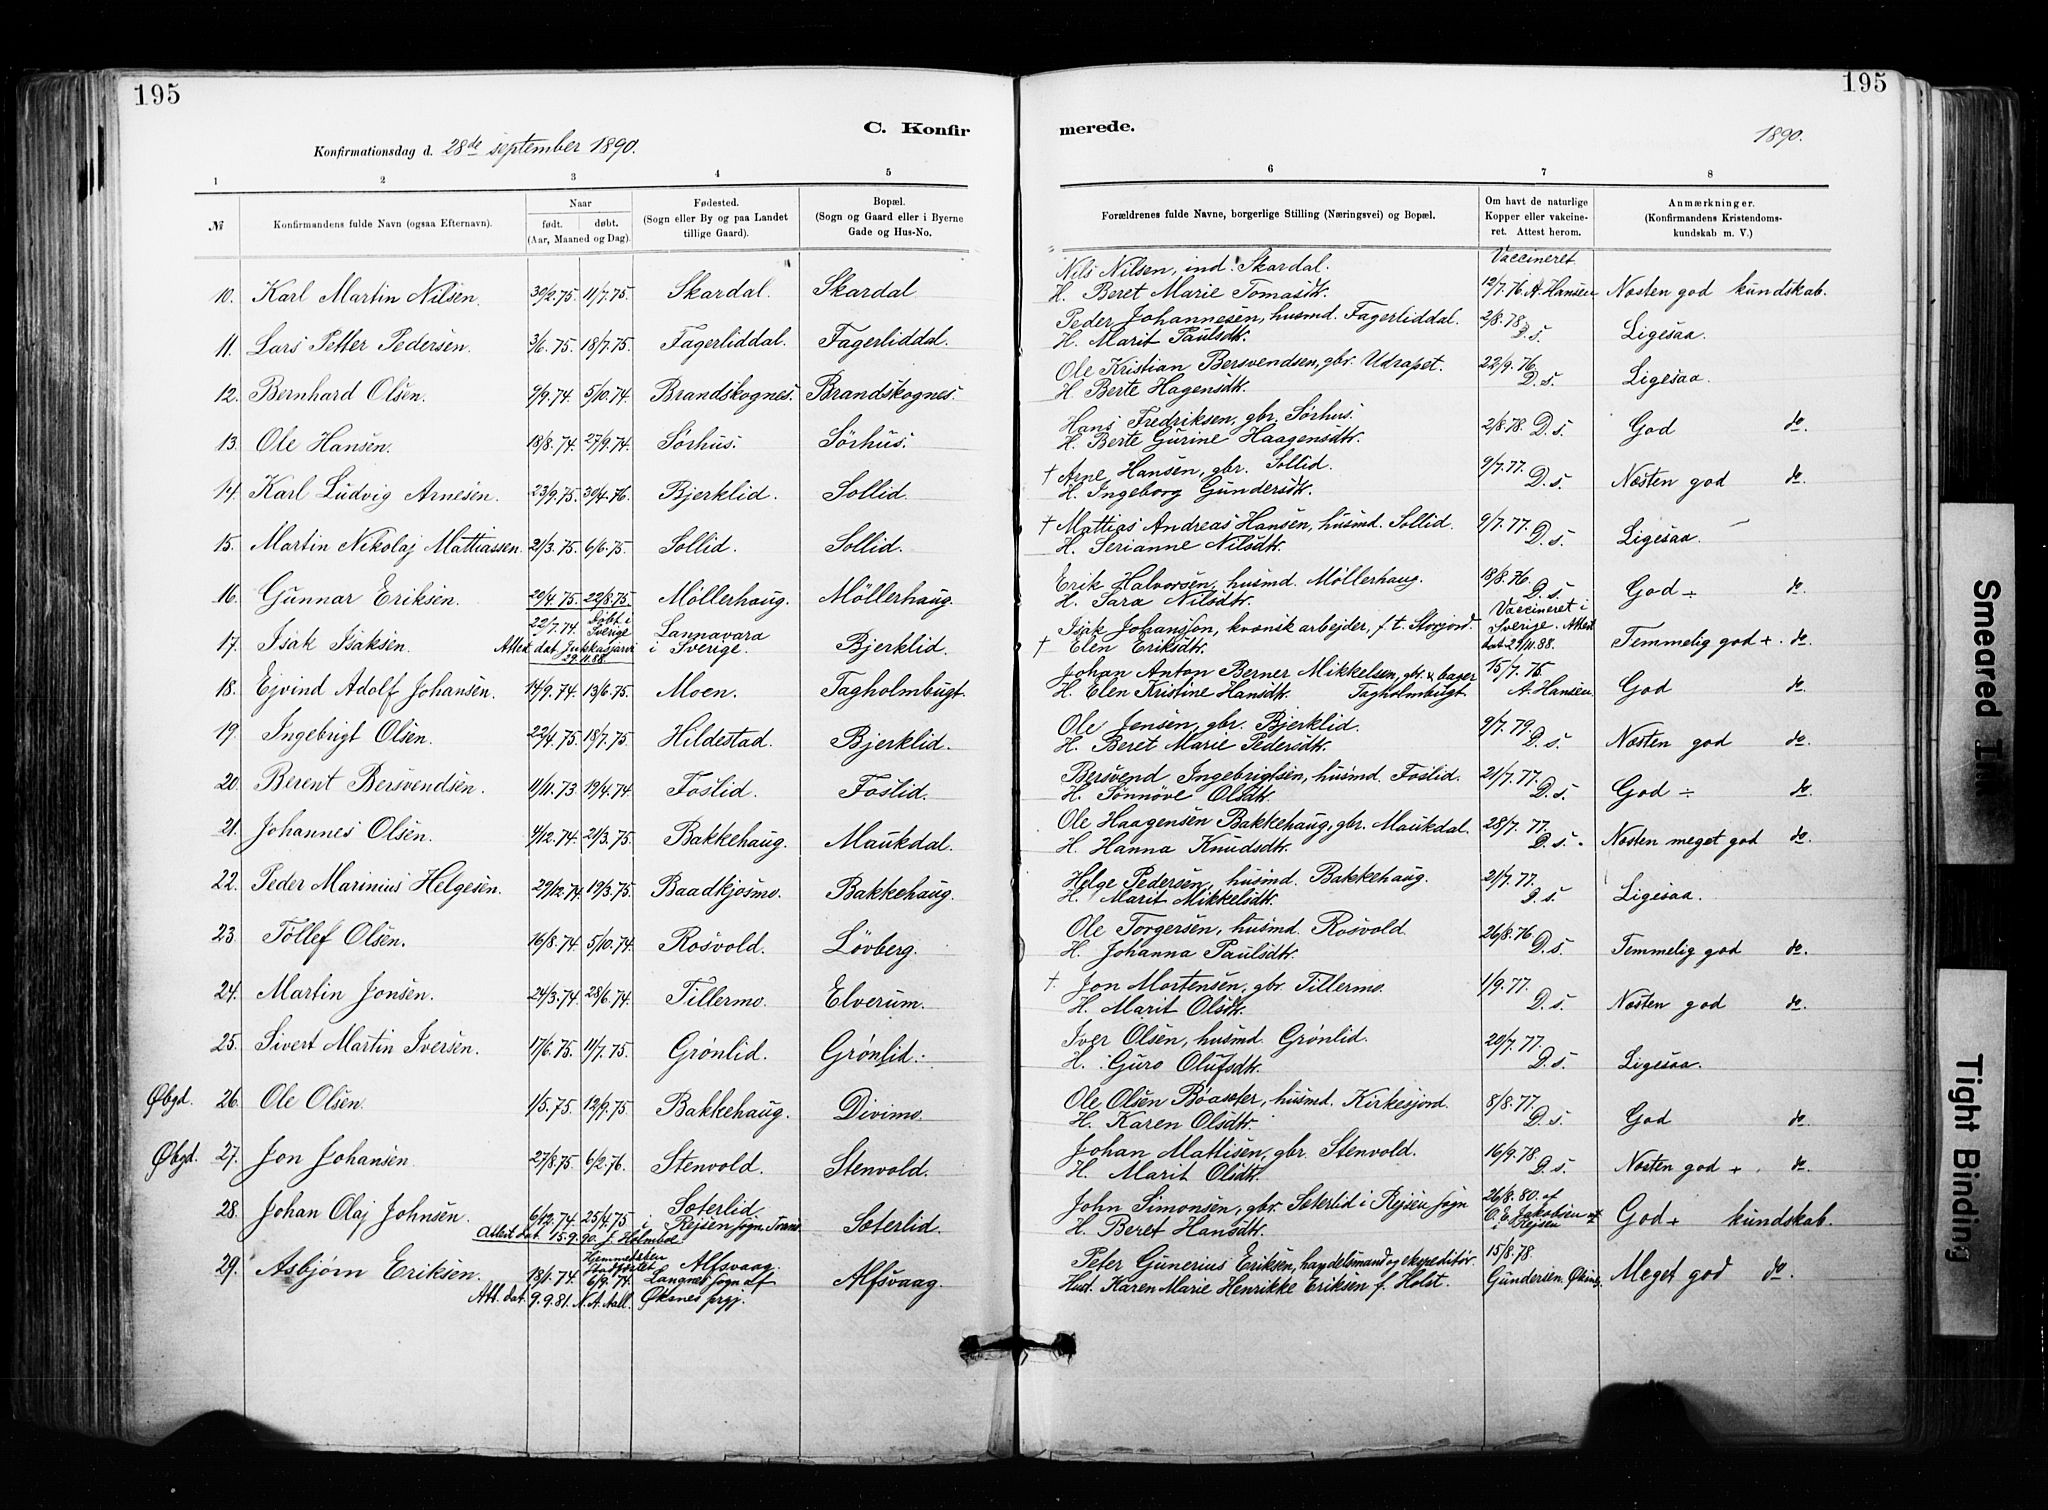 195
195
C. Konfirmerede.
Konfirmationsdag d. 28de september 1890.
1890.
1 2 3 4 5 6 7 8
№ Konfirmandens fulde Navn (ogsaa Efternavn). Naar født. døbt. (Aar, Maaned og Dag). Fødested. (Sogn eller By og paa Landet tillige Gaard). Bopæl. (Sogn og Gaard eller i Byerne Gade og Hus-No. Forældrenes fulde Navne, borgerlige Stilling (Næringsvei) og Bopæl. Om havt de naturlige Kopper eller vakcineret. Attest herom. Anmærkninger. (Konfirmandens Kristendomskundskab m. V.)
10. Karl Martin Nilsen. 30/2.75. 11/7.75. Skardal. Skardal Nils Nilsen, ind. Skardal. H. Beret Marie Tomasdtr. Vaccineret 12/7.76. A. Hansen Næsten god kundskab.
11. Lars Petter Pedersen. 3/6.75. 18/7.75. Fagerliddal. Fagerliddal. Peder Johannesen, husmd. Fagerliddal. H. Marit Paulsdtr. 2/8.78. D.s. Ligesaa.
12. Bernhard Olsen. 9/9.74. 5/10.74. Brandskognes. Brandskognes. Ole Kristian Bersvendsen, gbr. Udrapet. H. Berte Hagensdtr. 22/9.76. D.s. Ligesaa.
13. Ole Hansen. 18/8.74. 27/9.74. Sørhus. Sørhus. Hans Fredriksen, gbr. Sørhus. H. Berte Gurine Haagensdtr. 2/8.78. D.s. God do.
14. Karl Ludvig Arnesen. 23/9.75. 30/4.76. Bjerklid. Sollid. † Arne Hansen, gbr. Sollid. H. Ingeborg Gundersdtr. 9/7.77. D.s. Næsten god do.
15. Martin Nikolaj Mattiassen. 21/3.75. 6/6.75. Sollid. Sollid. † Mattias Andreas Hansen, husmd. Sollid. H. Serianne Nilsdtr. 9/7.77. D.s. Ligesaa.
16. Gunnar Eriksen. 20/4.75. 22/8.75. Møllerhaug. Møllerhaug. Erik Halvorsen, husmd. Møllerhaug. H. Sara Nilsdtr. 18/8.76. D.s. God ÷ do.
17. Isak Isaksen. 22/7.74. Døbt i Sverige Attest dat Jukkasjärvi 29.11.88. Lannavara i Sverige. Bjerklid. Isak Johansson, kvænsk arbejder, f.t. Storjord. † Elen Eriksdtr. Vaccineret i Sverige. Attest dat 29/11.88. Temmelig god + do.
18. Ejvind Adolf Johansen. 14/9.74. 13/6.75. Moen. Tagholmbugt. Johan Anton Berner Mikkelsen, gbr. & bager H. Elen Kristine Hansdtr. Tagholmbugt 15/7.75. A. Hansen God do.
19. Ingebrigt Olsen. 22/4.75. 18/7.75. Hildestad. Bjerklid. Ole Jensen, gbr. Bjerklid. H. Beret Marie Pedersdtr. 9/7.79. D.s. Næsten god do.
20. Berent Bersvendsen. 11/11.73. 19/4.74. Foslid. Foslid. Bersvend Ingebrigtsen, husmd. Foslid. H. Sønnøve Olsdtr. 21/7.77. D.s. God ÷ do.
21. Johannes Olsen. 4/12.74. 21/3.75. Bakkehaug. Maukdal. Ole Haagensen Bakkehaug, gbr. Maukdal. H. Hanna Knudsdtr. 28/7.77. D.s. Næsten meget god do.
22. Peder Marinius Helgesen. 29/12.74. 19/3.75. Baadkjosmo. Bakkehaug. Helge Pedersen, husmd. Bakkehaug. H. Marit Mikkelsdtr. 21/7.77. D.s. Ligesaa.
23. Tollef Olsen. 16/8.74. 5/10.74. Rosvold. Løvberg. Ole Torgersen, husmd. Rosvold H. Johanna Paulsdtr. 26/8.76. D.s. Temmelig god do.
24. Martin Jonsen. 24/3.74. 28/6.74. Tillermo. Elverum. † Jon Mortensen, gbr. Tillermo. H. Marit Olsdtr. 1/9.77. D.s. Næsten god do.
25. Sivert Martin Iversen. 17/6.75. 11/7.75. Grønlid. Grønlid. Iver Olsen, husmd. Grønlid. H. Guro Olufsdtr. 29/7.77. D.s. Ligesaa.
Øbgd. 26. Ole Olsen. 1/5.75. 12/9.75. Bakkehaug. Divimo. Ole Olsen Bøasæter, husmd. Kirkesjord. H. Karen Olsdtr. 8/8.77. D.s. God do.
Øbgd. 27. Jon Johansen. 27/8.75. 6/2.76. Stenvold. Stenvold. Johan Mattisen, gbr. Stenvold. H. Marit Olsdtr. 16/9.78. D.s. Næsten god + do.
28. Johan Olaj Johnsen. 6/12.74. 25/4.75. Attest dat. 15.9.90. J. Holmboe Sæterlid i Rejsen sogn Tromsø Sæterlid. John Simonsen, gbr. Seterlid i Rejsen sogn H. Beret Hansdtr. 26/8.80. af O. E. Jakobsen i Rejsen God + kundskab.
29. Asbjørn Eriksen. 13/1.74. Hjemmedøben Stadfæstet 6/9.74. Att. dat. 9.9.81. N. A. Aall. Alfsvaag. Langnes sogn af Øksnes prgj. Alfsvaag. Peter Gunerius Eriksen, handelsmand og ekspeditør. Hust. Karen Marie Henrikke Eriksen f. Holst. 15/8.78 Gundersen. Øksnes Meget god do.
Smeared Ink
Tight Binding